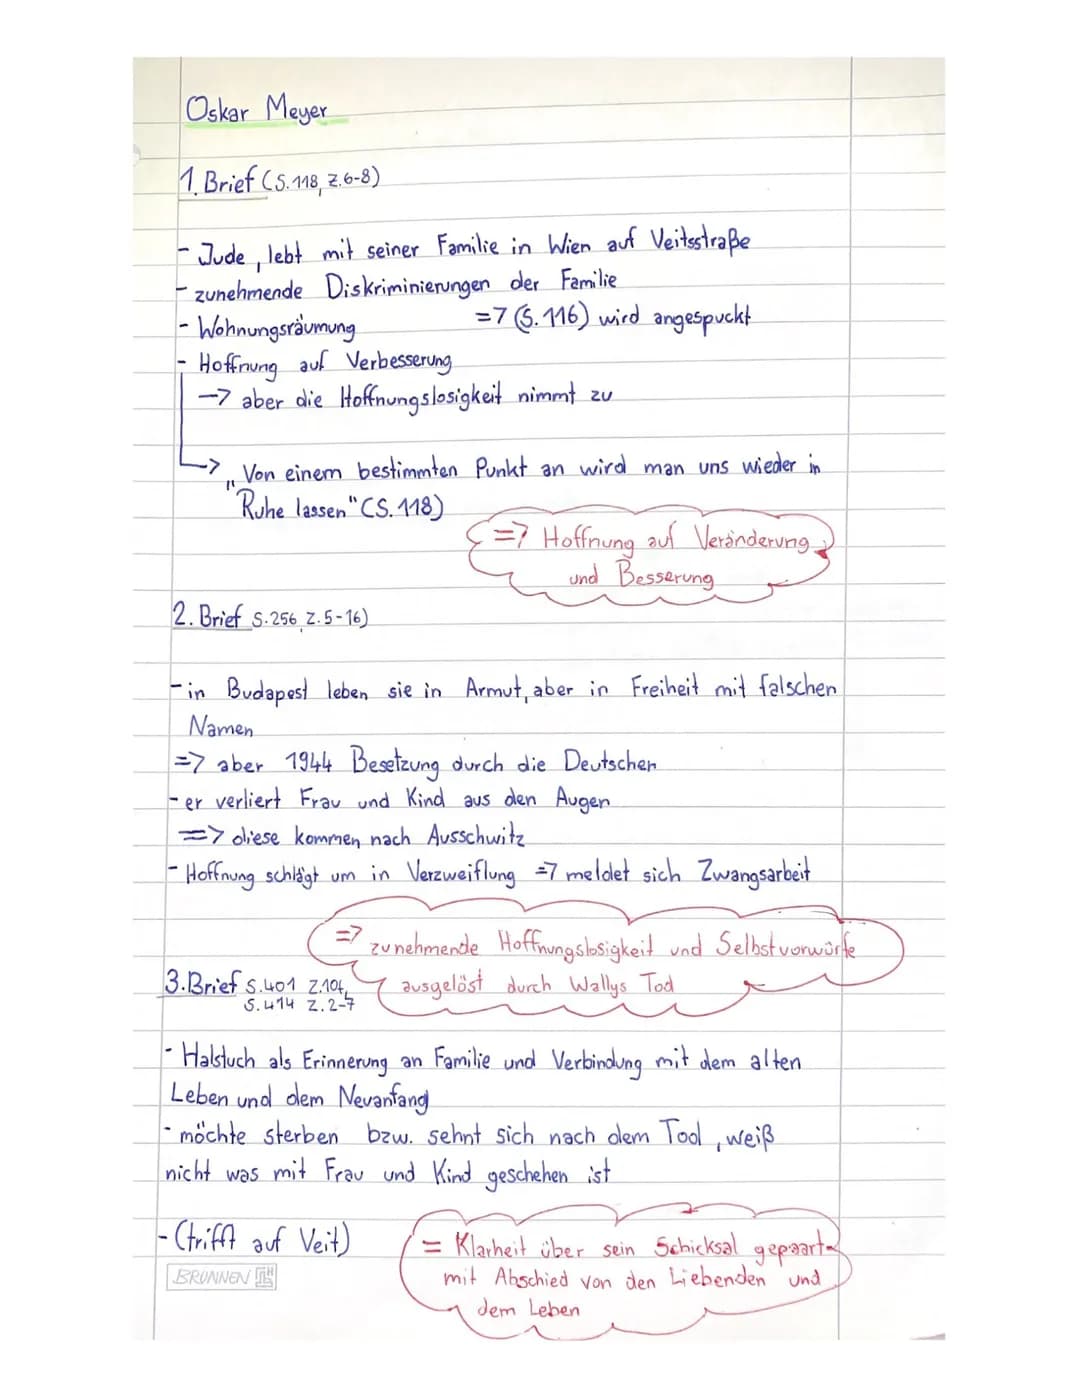 Oskar Meyer
1. Brief (S. 118, Z. 6-8)
- Jude, lebt mit seiner Familie in Wien auf Veitsstraße
- zunehmende Diskriminierungen der Familie
- Wohnungsräumung => (S. 116) wird angespuckt
- Hoffnung auf Verbesserung
-> aber die Hoffnungslosigkeit nimmt zu
-> „Von einem bestimmten Punkt an wird man uns wieder in
Ruhe lassen" (S. 118)
=> Hoffnung auf Veränderung
und Besserung
2. Brief S. 256 Z. 5-16)
- in Budapest leben sie in Armut, aber in Freiheit mit falschen
Namen
=> aber 1944 Besetzung durch die Deutschen
- er verliert Frau und Kind aus den Augen
=> diese kommen nach Ausschwitz
- Hoffnung schlägt um in Verzweiflung => meldet sich Zwangsarbeit
=> zunehmende Hoffnungslosigkeit und Selbstvorwürfe
ausgelöst durch Wallys Tod
3. Brief S. 401 Z. 104,
S. 414 Z. 2-7
- Halstuch als Erinnerung an Familie und Verbindung mit dem alten
Leben und dem Neuanfang
- möchte sterben bzw. sehnt sich nach dem Tod, weiß
nicht was mit Frau und Kind geschehen ist
- (trifft auf Veit)
= Klarheit über sein Schicksal gepaart
mit Abschied von den Liebenden und
dem Leben
BRUNNEN